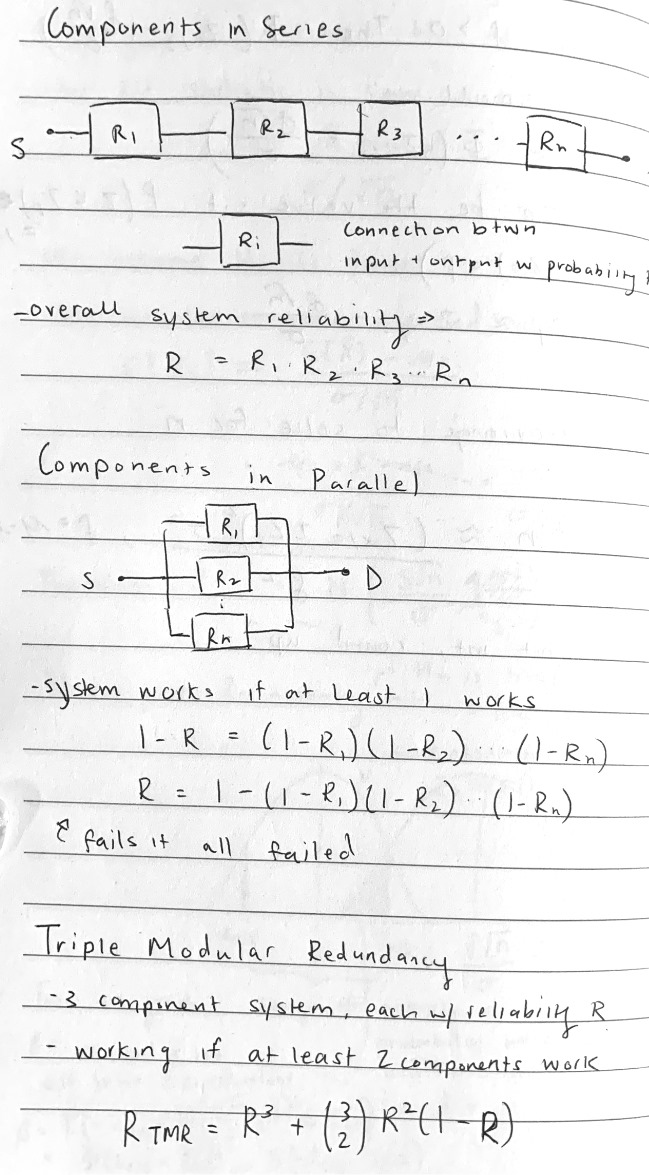 Components in Series
S R1 R2 R3 ... Rn
Ri connection btwn
input + output w probability
-overall system reliability ⇒
R = R1 · R2 · R3 ... Rn
Components in Parallel
R1
S R2 D
⋮
Rn
-system works if at least 1 works
1 - R = (1-R1)(1-R2) ... (1-Rn)
R = 1 - (1-R1)(1-R2) ... (1-Rn)
fails if all failed
Triple Modular Redundancy
-3 component system, each w/ reliability R
- working if at least 2 components work
R TMR = R³ + (3 2) R²(1-R)